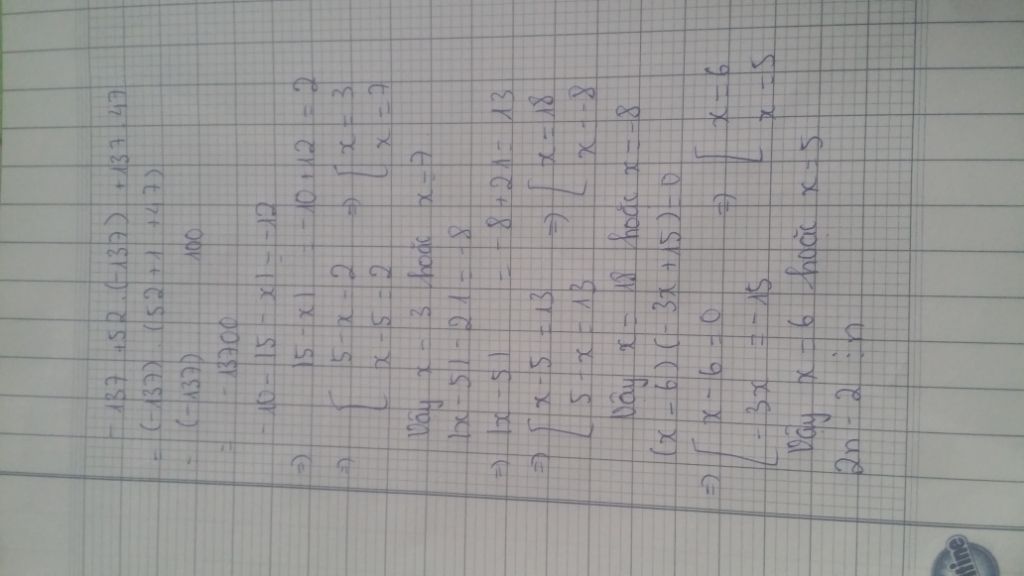 - 137 + 52 . (-137) + 137 . 47
= (-137) . (52 + 1 + 47)
= (-137) 100
= - 13700
- 10 - |5 - x| = -12
=> |5 - x| = -10 + 12 = 2
=> [ 5 - x = 2 => [ x = 3
[ x - 5 = 2 [ x = 7
Vậy x = 3 hoặc x = 7
|x - 5| - 21 = -8
=> |x - 5| = -8 + 21 = 13
=> [ x - 5 = 13 => [ x = 18
[ 5 - x = 13 [ x = -8
Vậy x = 18 hoặc x = -8
(x - 6)(-3x + 15) = 0
=> [ x - 6 = 0 => [ x = 6
[ -3x = -15 [ x = 5
Vậy x = 6 hoặc x = 5
2n - 2 ⋮ n
line